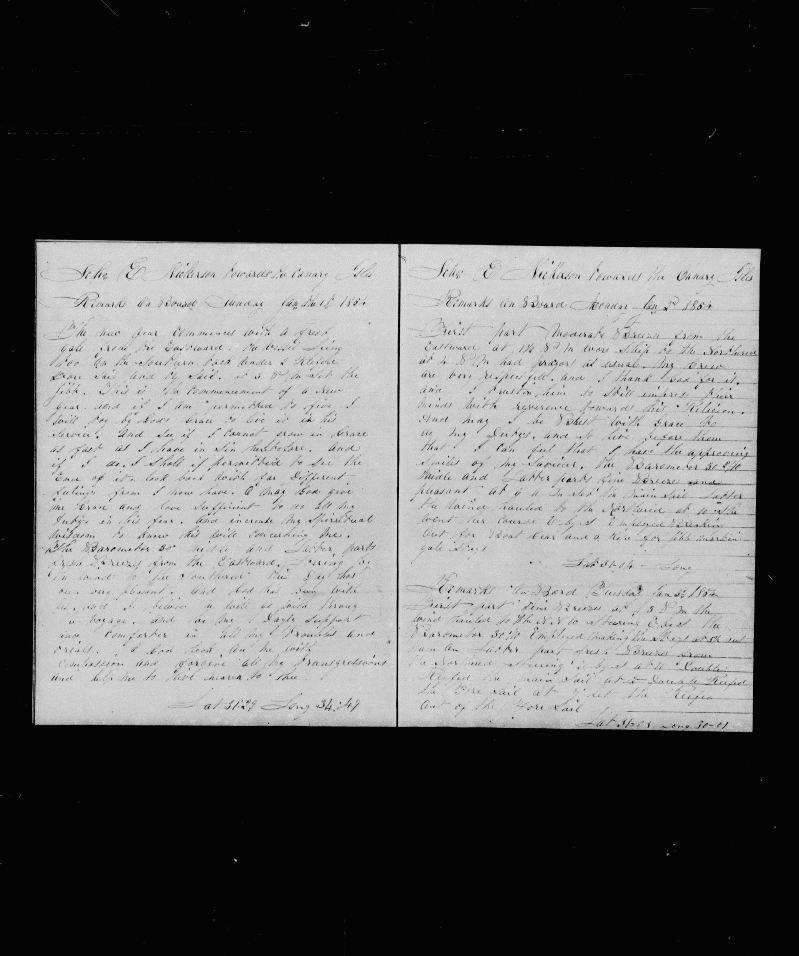 Schr E Nickerson towards the Canary Isls
Remarks on Board Sunday Jan 1st 1854
The new year commences with a fresh
gale from the Eastward the vessel lying
too on the Southern tack under 2 Reefed
Fore Sail and try Sail at 3 P M set the
jibb. This is the Commencement of a New
year and if I am permitted to live I
will try by Gods Grace to live it in his
Service. And see if I cannot grow in Grace
as fast as I have in Sin heretofore. And
if I do, I shall if permitted to see the
End of it look back with far Different
feelings from I now have. O may God give
me Grace and love Sufficient to do all my
Dutys in his fear. and increase my Spiritual
wisdom to know his will concerning me.
The Barometer 30 middle and Latter parts
fresh Breezes from the Eastward,
the wind to the Southward this Day has
been very pleasant. and God has been with
us. and I
a voyage. and as my Dayly Support
and comforter in all my Troubles and
trials. O God look on me with
Compassion and forgive all my transgressions
and help me to live nearer to thee
Lat 31-29 Long 34-49
Schr E Nickerson towards the Canary Isls
Remarks on Board Monday Jan 2d 1854
First part Moderate Breezes from the
Eastward at 1½ P M wore Ship to the Northward
at 4 P M had prayers as usual. My Crew
are very respectfull. and I thank God for it.
and I him to Still impress their
minds with reverence towards his Religion.
And may I be Blest with Grace to
do my Dutys, and so live before them
that I can feel that I have the approving
Smiles of my Saviour. The Barometer 30 2/10
Middle and Latter parts fine Breezes and
pleasant at 9 A M set the main Sail Latter
the wind hauled to the Northward at
went our course E by S Employed Breaking
out for Boat Gear and a new jibb
gale
Lat 31-04 Long
Remarks on Board Tuesday Jan 3d 1854
First part fine Breezes at 3 P M the
wind hauled to the N N W Steering E by S the
Barometer 30 2/10 Employed making the
Latter part fresh Breezes from
the Northward Steering E by S at 4 Double
Reefed the main Sail at 5 Double Reefed
the Fore Sail at 7 let the Reefs
out of the Fore Sail
Lat 31-03 Long 30-01